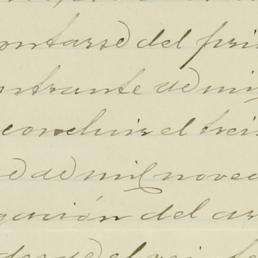 ontarse del pri
ntrante de mi
concluir el trei
e de mil nove
gación del ar
desde el